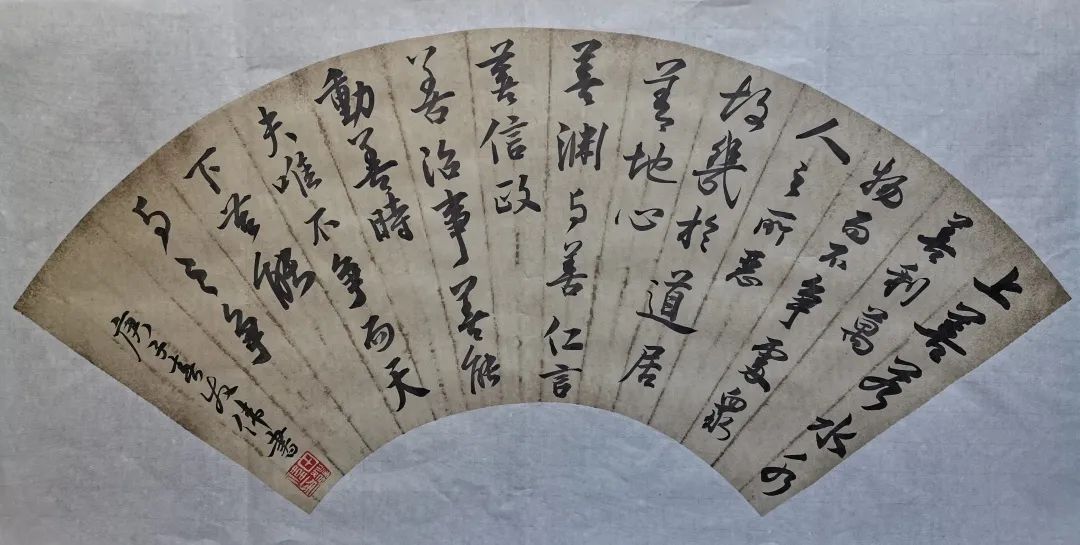 上善若水水
善利萬
物而不争處衆
人之所惡
故幾於道居
善地心
善淵与善仁言
善信政
善治事善能
動善時
夫唯不争而天
下莫能
与之争
庚子春 伟書